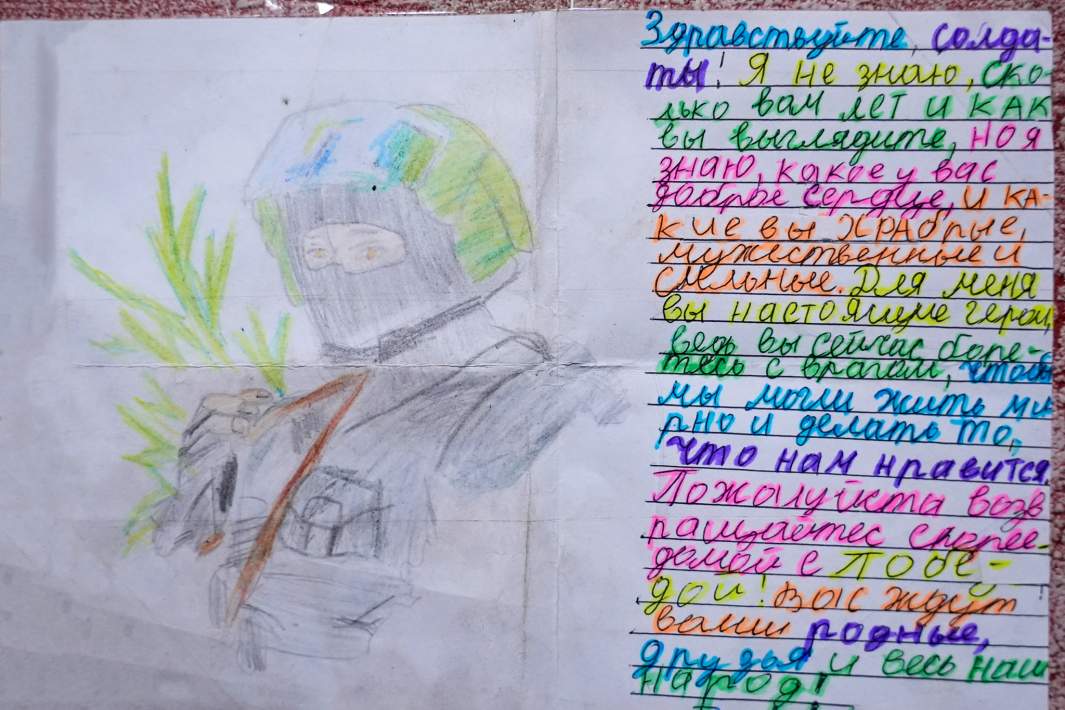 Здравствуйте, солда-
ты! Я не знаю, ско-
лько вам лет и как
вы выглядите, но я
знаю, какое у вас
доброе сердце, и ка-
кие вы храбрые,
мужественные и
сильные. Для меня
вы настоящие герои,
ведь вы сейчас боре-
тесь с врагом, чтобы
мы могли жить ми
рно и делать то,
что нам нравится.
Пожалуйста возв
ращайтес скорее
домой с побе-
дой! Вас ждут
ваши родные,
друзья и весь наш
народ!